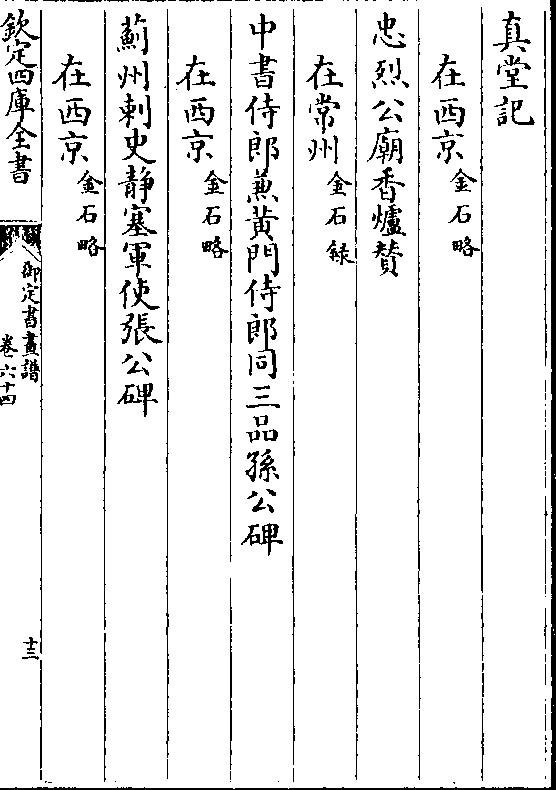 真堂記
在西京金石略
忠烈公廟香爐賛
在常州金石録
中書侍郎兼黄門侍郎同三品孫公碑
在西京金石略
薊州刺史静塞軍使張公碑
在西京金石略
欽定四庫全書
御定書畫譜
卷六十四
十三